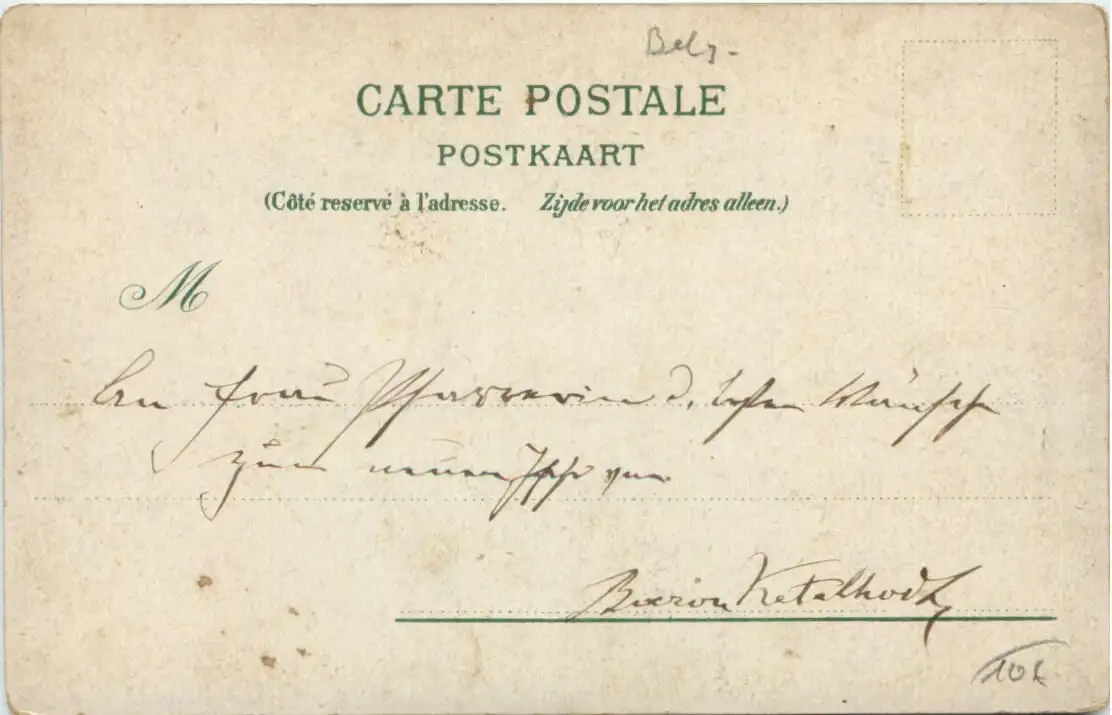 Belg-
CARTE POSTALE
POSTKAART
(Côté reservé à l'adresse. Zijde voor het adres alleen.)
M
An Frau Pfarrerin d. besten Wünsche
zum neuen Jahr von
Baron Ketelhodt